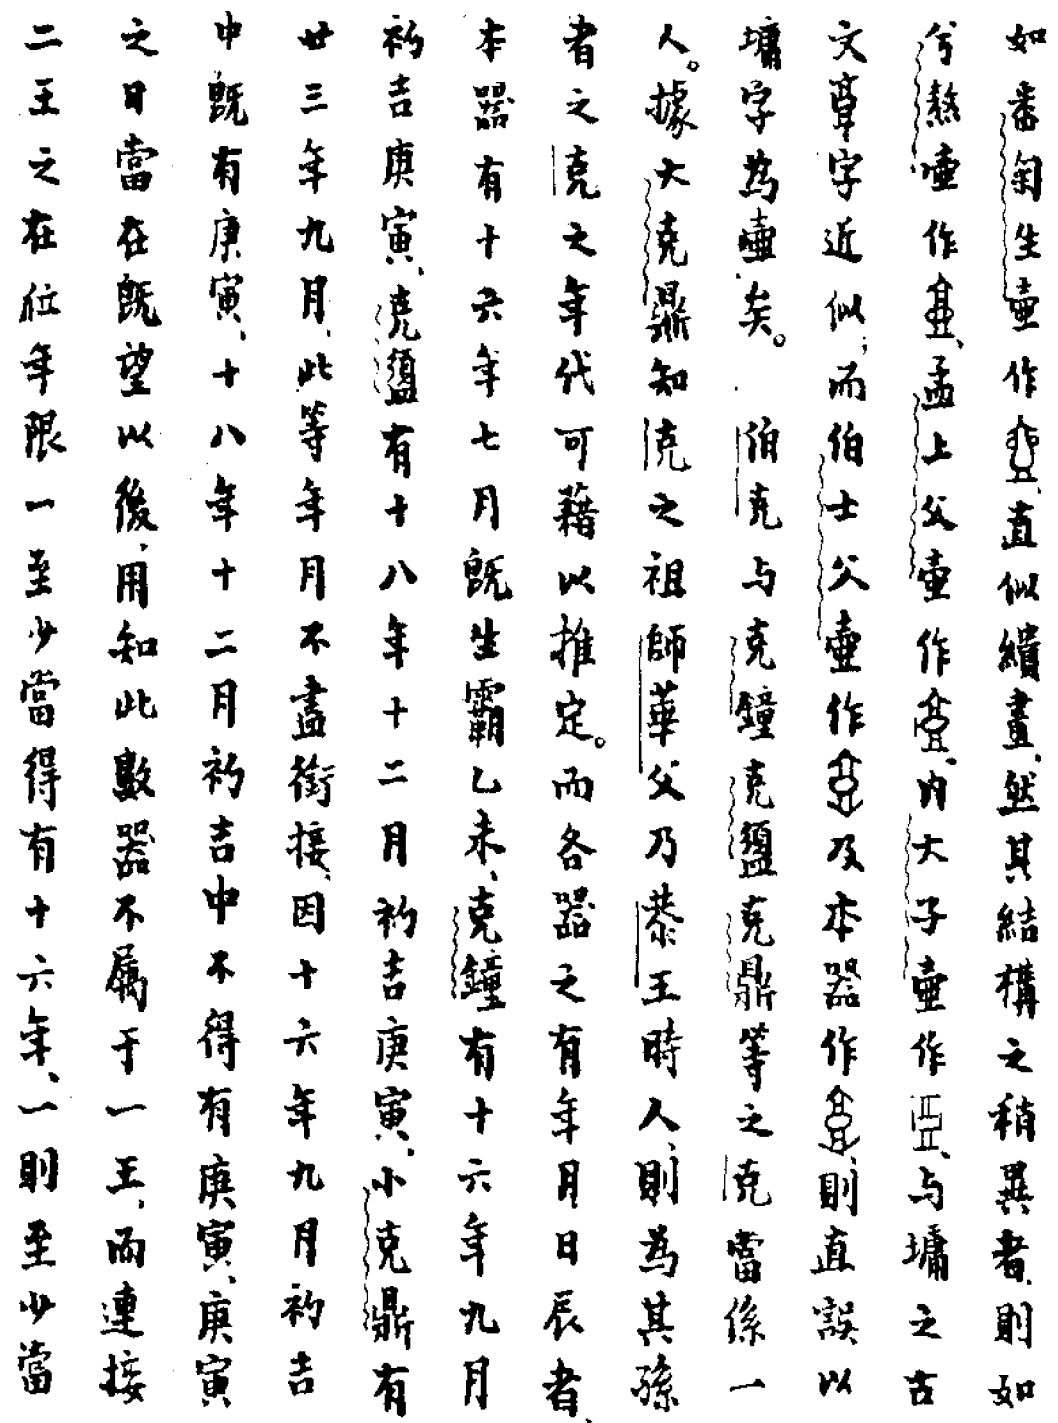 如番匊生壺作、直似繢畫、然其結構之稍異者、則如
兮熬壺作、孟上父壺作、内大子壺作、与墉之古
文𩫖字近似；而伯士父壺作及本器作、則直誤以
墉字為壺矣。伯克与克鐘克盨克鼎等之克當係一
人。據大克鼎知克之祖師華父乃恭王時人、則為其孫
者之克之年代可藉以推定。而各器之有年月日辰者、
本器有十六年七月既生霸乙未、克鐘有十六年九月
初吉庚寅、克盨有十八年十二月初吉庚寅、小克鼎有
廿三年九月、此等年月不盡銜接、因十六年九月初吉
中既有庚寅、十八年十二月初吉中不得有庚寅、庚寅
之日當在既望以後、用知此數器不屬于一王、而連接
二王之在位年限一至少當得有十六年、一則至少當